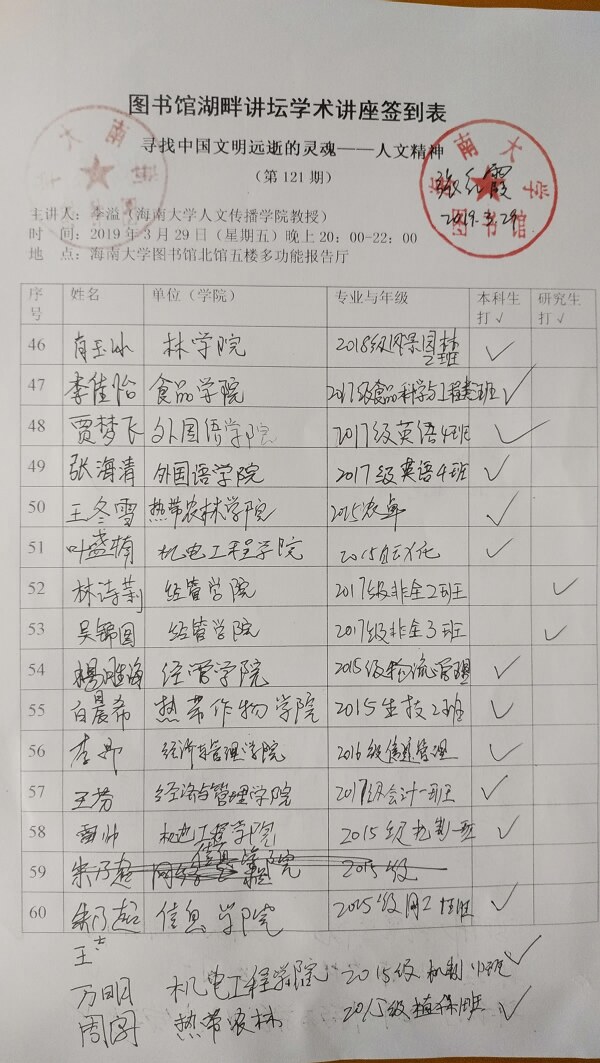 图书馆湖畔讲坛学术讲座签到表
寻找中国文明远逝的灵魂——人文精神
（第 121 期）
海南大学
图书馆
2019.3.29
主讲人：李溢（海南大学人文传播学院教授）
时　间：2019 年 3 月 29 日（星期五）晚上 20：00-22：00
地　点：海南大学图书馆北馆五楼多功能报告厅
序号 姓名 单位（学院） 专业与年级 本科生打√ 研究生打√
46 肖玉冰 林学院 2018级风景园林2班 √
47 李佳怡 食品学院 2017级食品科学与工程类班 √
48 贾梦飞 外国语学院 2017级英语4班 √
49 张海清 外国语学院 2017级英语4班 √
50 王冬雪 热带农林学院 2015农卓 √
51 叶盛楠 机电工程学院 2015自动化 √
52 林诗莉 经管学院 2017级非全2班 √
53 吴锦国 经管学院 2017级非全3班 √
54 经管学院 2015级物流管理 √
55 白晨希 热带作物学院 2015生技2班 √
56 李丹 经济与管理学院 2016级信息管理 √
57 王芬 经济与管理学院 2017级会计一班 √
58 雷帅 机电工程学院 2015级机制一班 √
59 朱乃超 学院 2015级
60 朱乃超 信息学院 2015级网工 班 √
王
万明 机电工程学院 2015级机制 班 √
周宇 热带农林 2015级植保 班 √